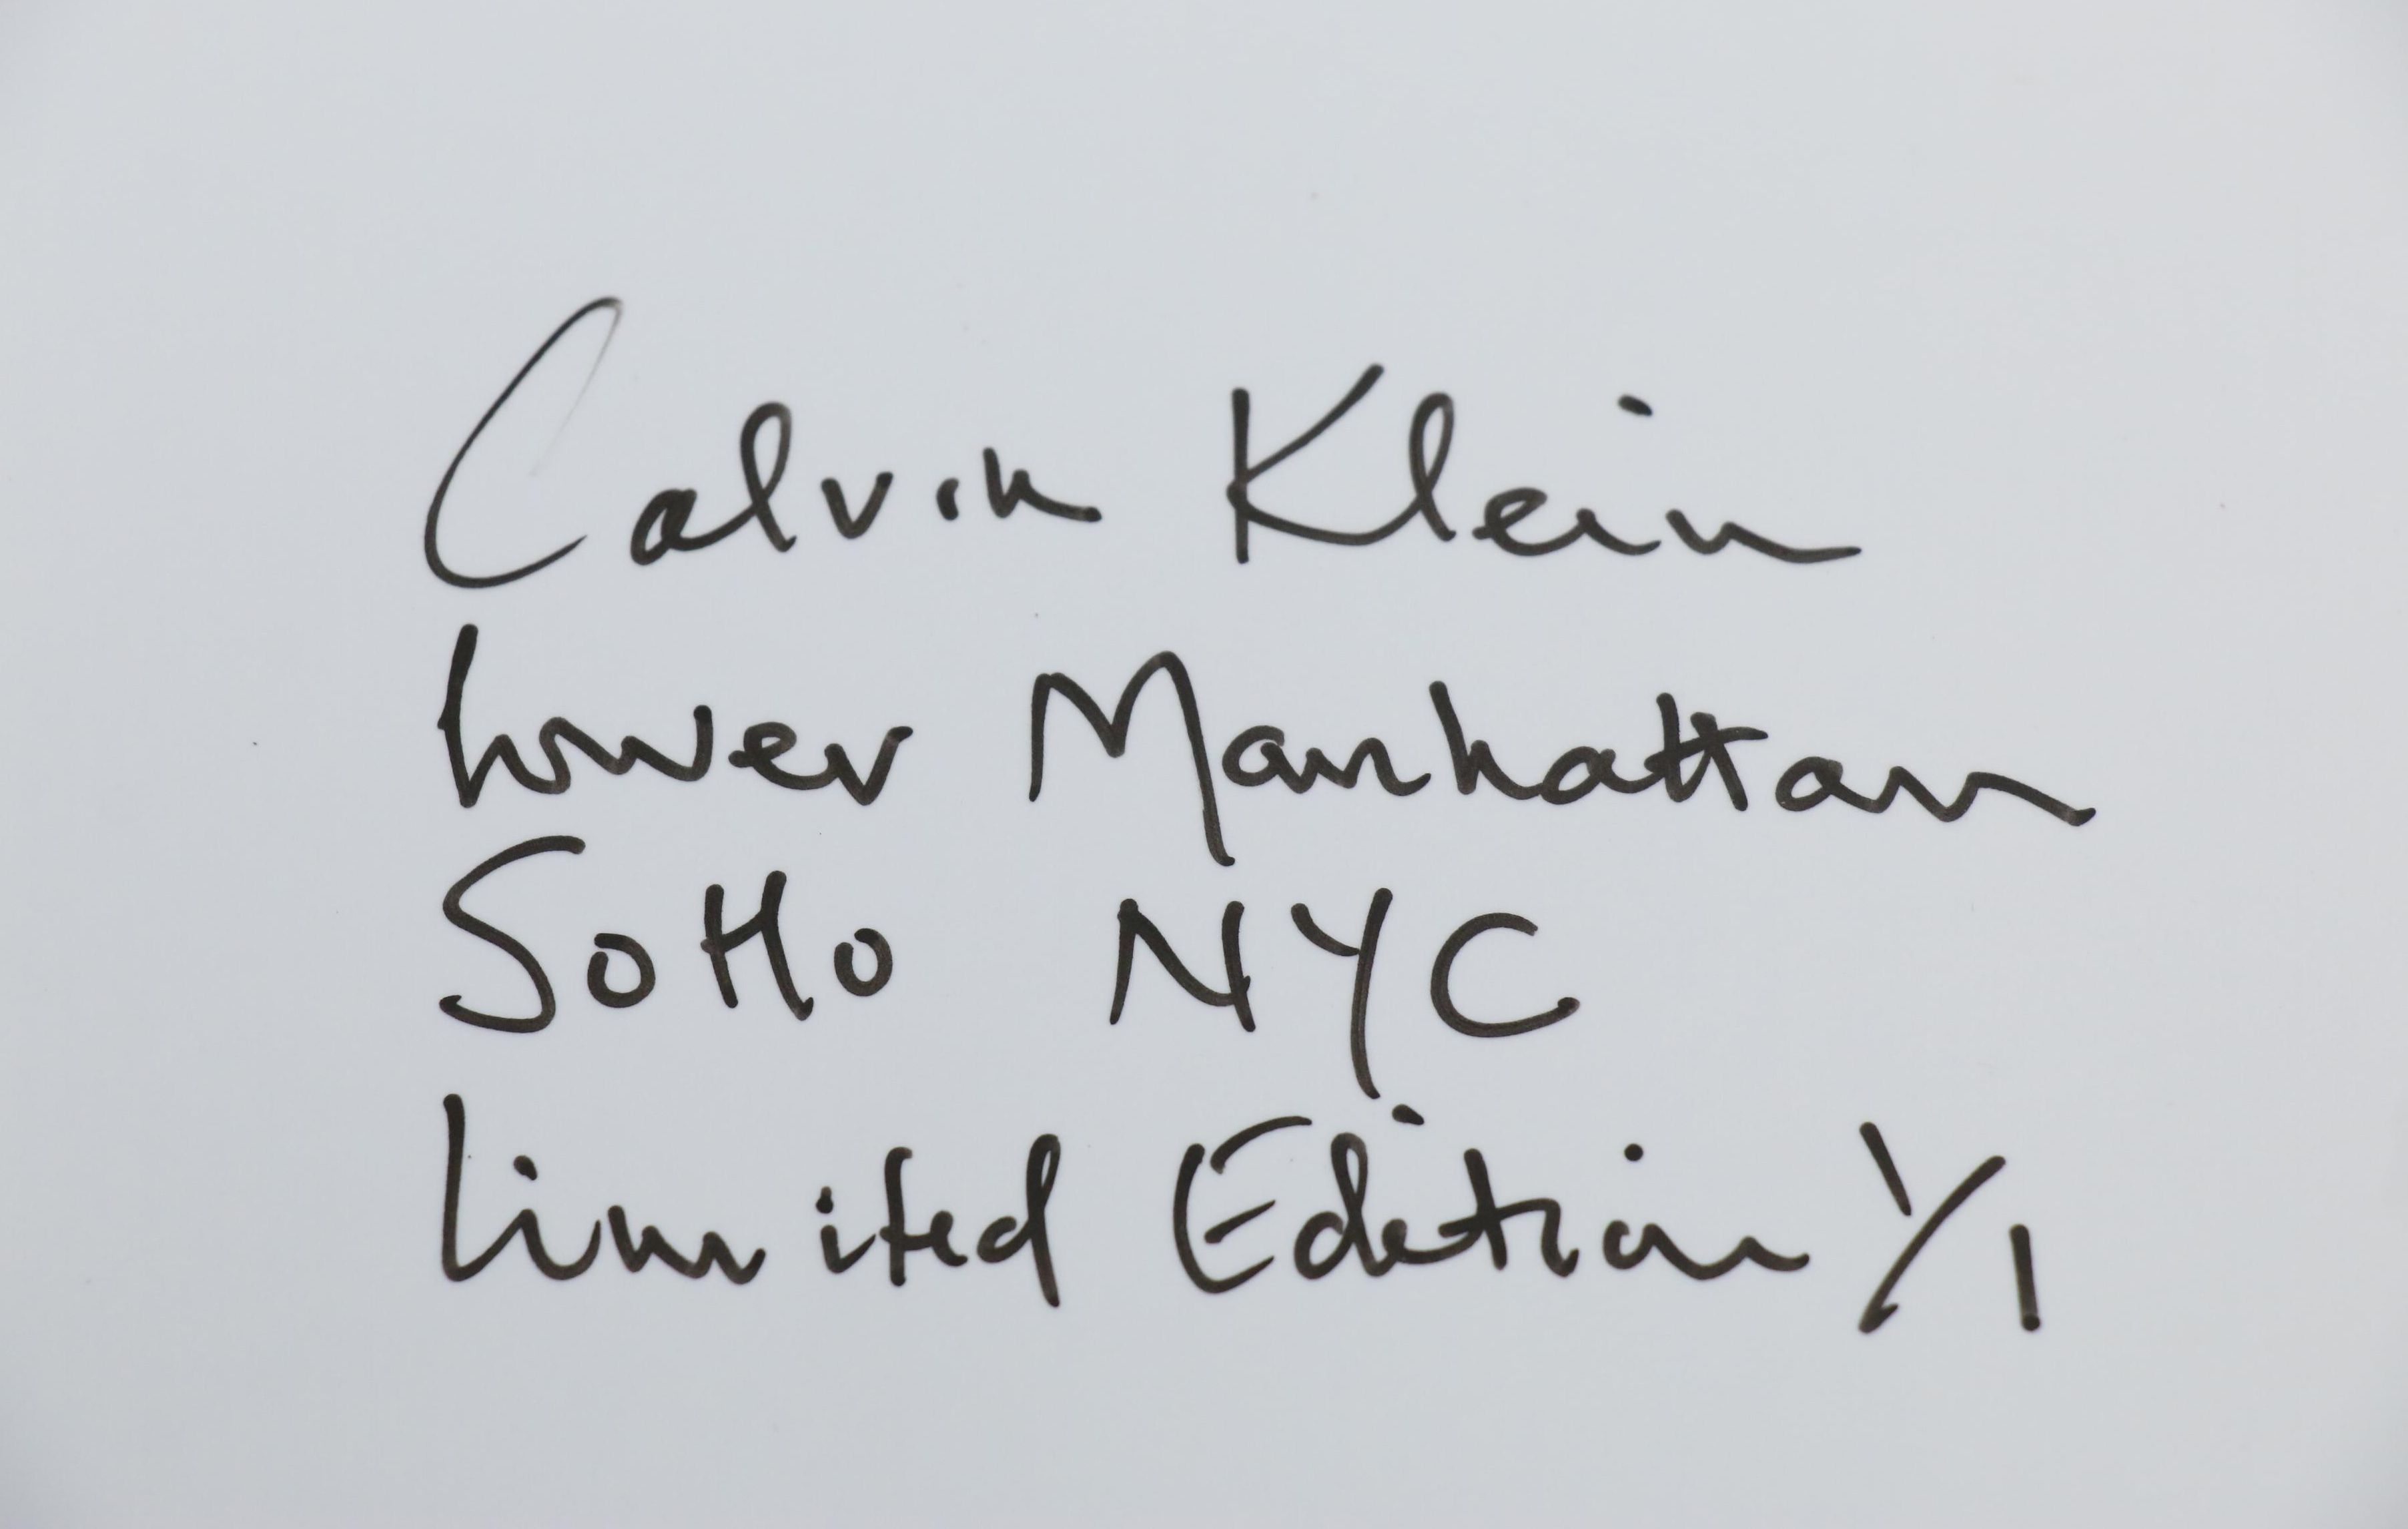 Calvin Klein
Lower Manhattan
SoHo NYC
Limited Edition 1/1